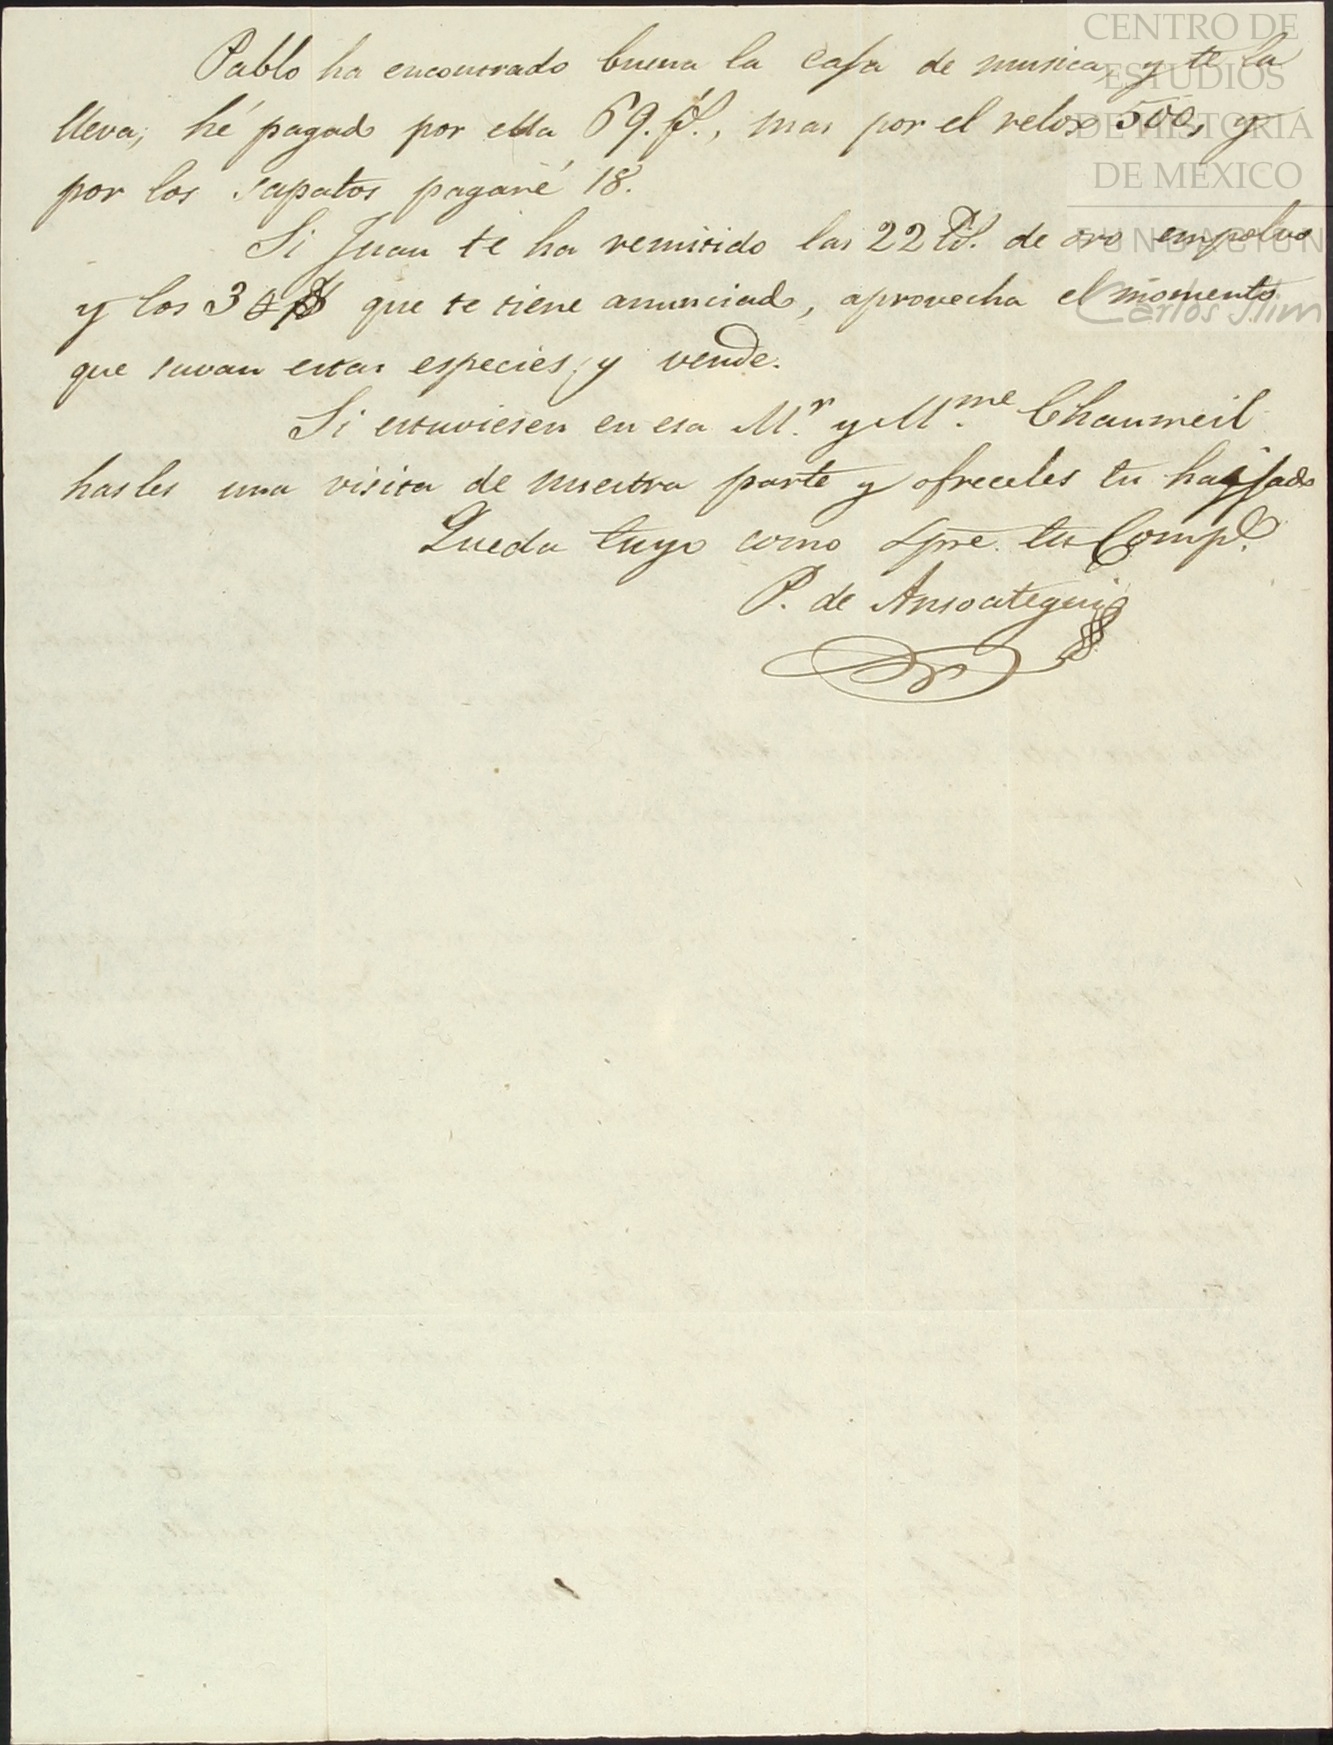 Pablo ha encontrado buena la cafa de musica, y te la
lleva; hé pagado por ella 69. f.s, mas por el relox 500, y
por los sapatos pagaré 18.
Si Juan te ha remitido las 22 de oro empolvo
y los que te tiene anunciado, aprovecha el momento
que suvan estas especies, y vende.
Si estuviesen en esa M.r y M.me Chaumeil
hasles una visita de nuestra parte y ofreceles tu
Queda tuyo como spre. tu Comp.e
P. de Ansoategui
CENTRO DE
ESTUDIOS
DE HISTORIA
DE MEXICO
FUNDACION
Carlos Slim